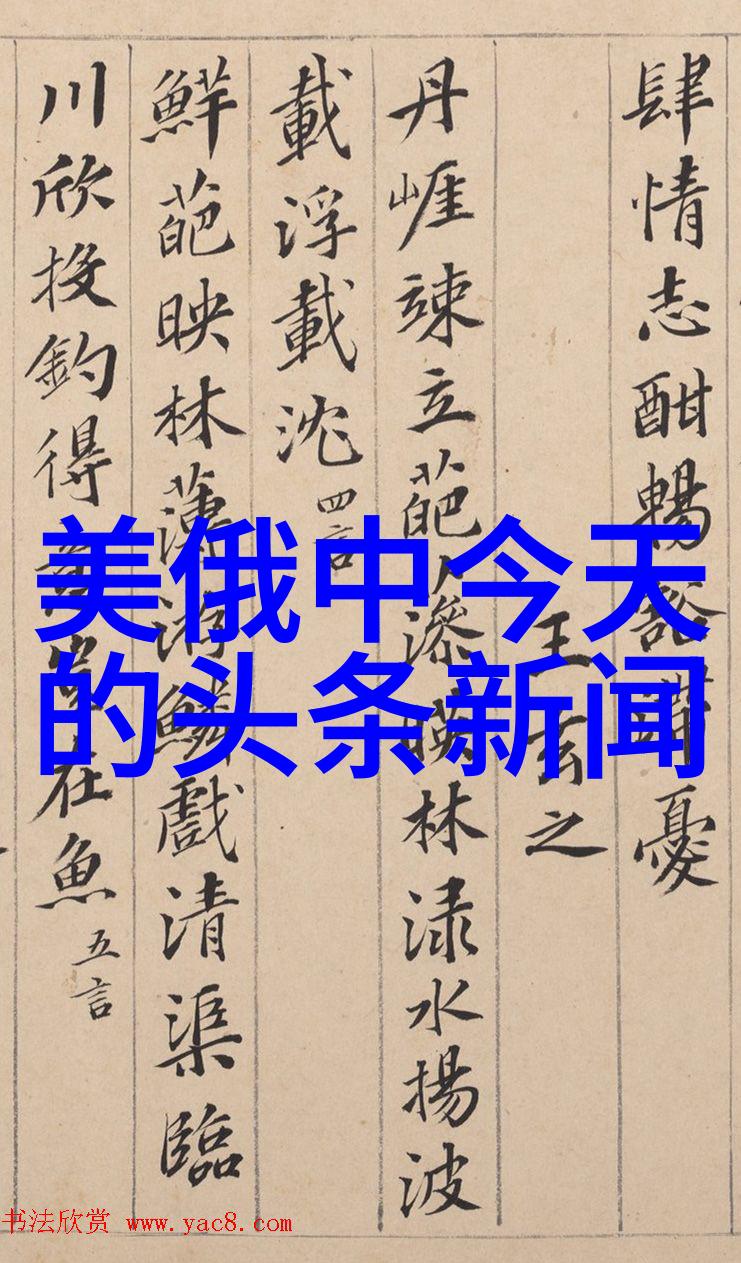 肆情志酣暢豁滯憂
王玄之
丹崖竦立葩藻暎林淥水揚波
載浮載沈 四言
鮮葩映林薄游鱗戲清渠臨
川欣投釣得意豈在魚 五言
美俄中今天
的头条新闻
书法欣赏 www.yac8.com